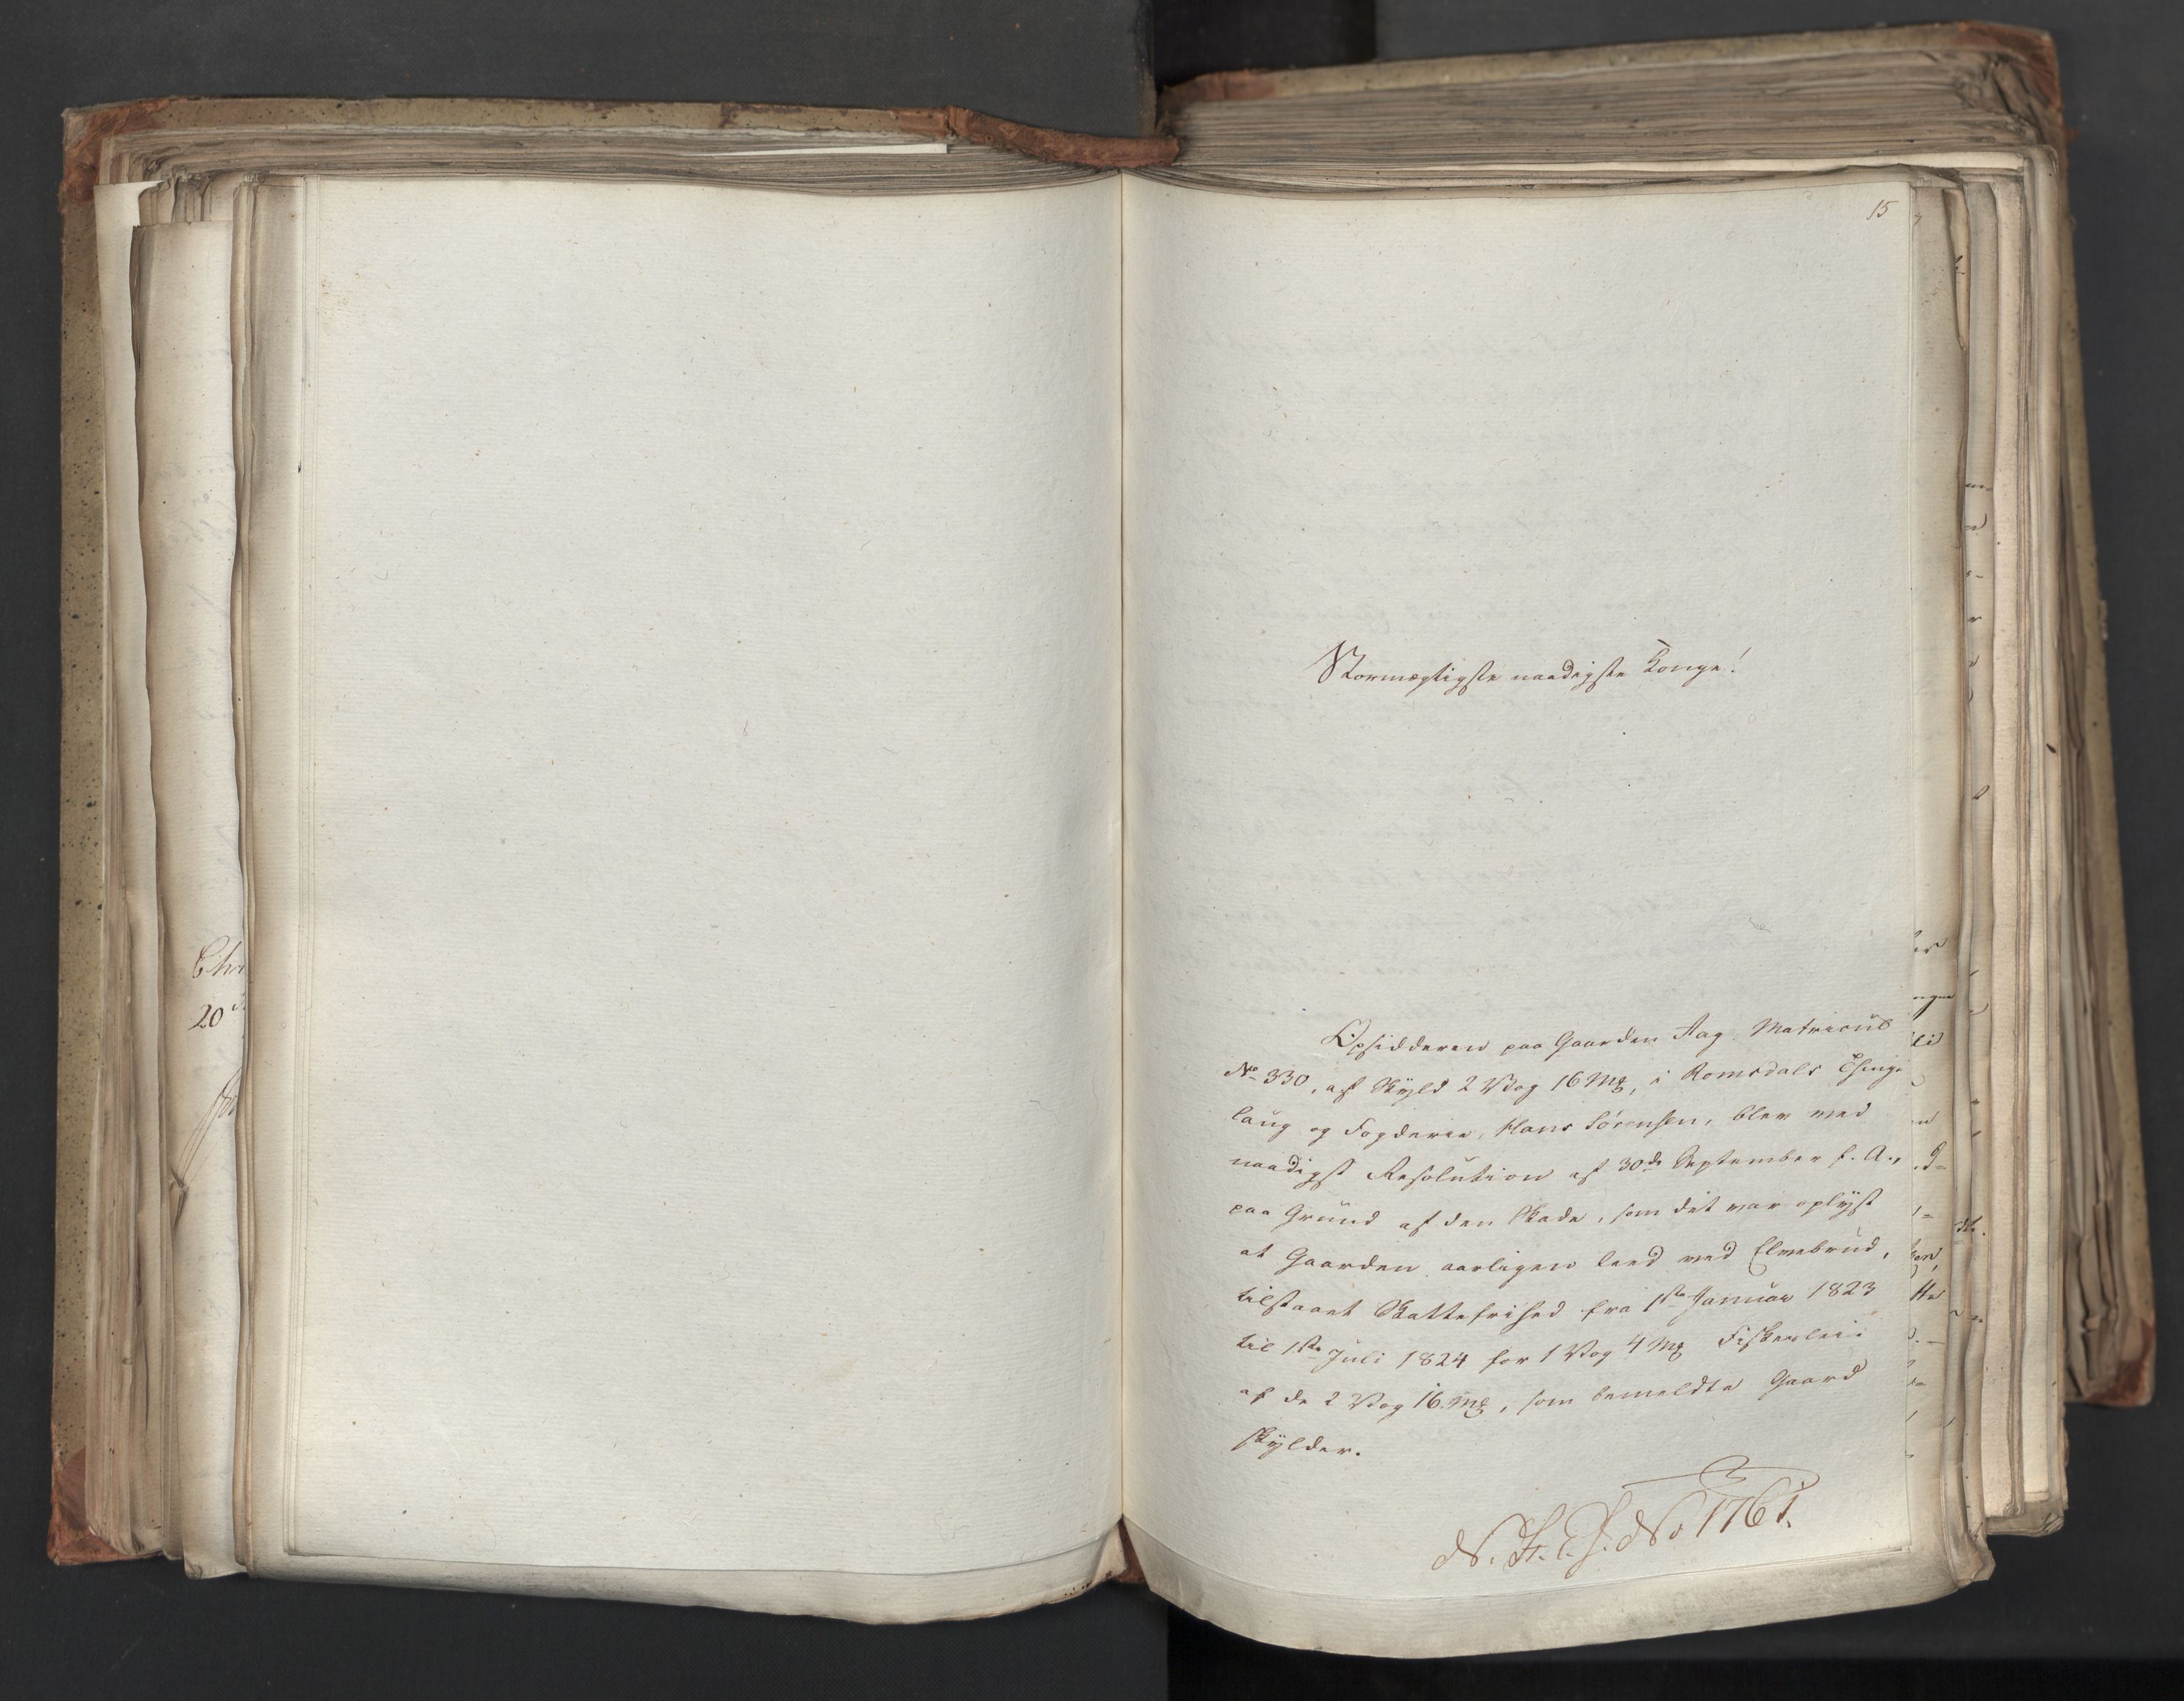 15
Stormægtigste naadigste Konge!
Opsidderen paa Gaarden Aag, Matricul
No 330, af Skyld 2 Vog 16 Mg, i Romsdals Thing-
laug og Fogderie, Hans Sørensen, blev ved
naadigst Resolution af 30de September f. A.,
paa Grund af den Skade, som det var oplyst
at Gaarden aarligen leed ved Elvebrud,
tilstaaet Skattefrihed fra 1ste Januar 1823
til 1ste Juli 1824 for 1 Vog 4 Mg Fiskerleie
af de 2 Vog 16 Mg, som bemeldte Gaard
skylder.
No 1761.
Chr
20